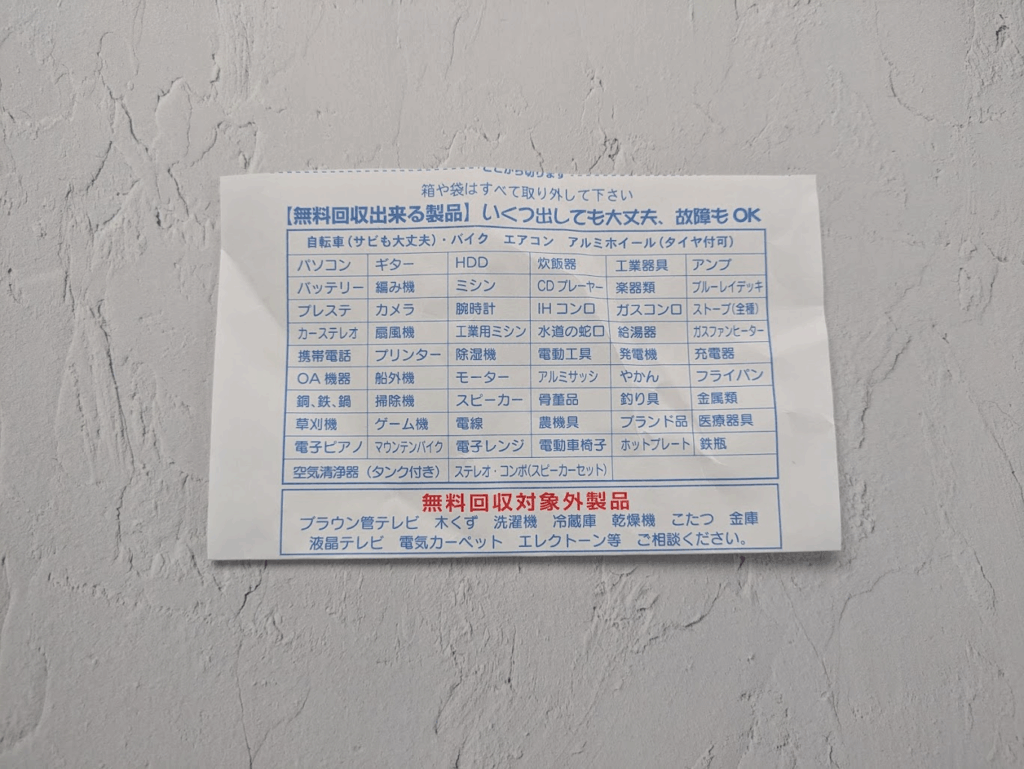 ここから切ります
箱や袋はすべて取り外して下さい
【無料回収出来る製品】いくつ出しても大丈夫、故障もOK
自転車(サビも大丈夫)・バイク エアコン アルミホイール(タイヤ付可)
パソコン ギター HDD 炊飯器 工業器具 アンプ
バッテリー 編み機 ミシン CDプレーヤー 楽器類 ブルーレイデッキ
プレステ カメラ 腕時計 IHコンロ ガスコンロ ストーブ(全種)
カーステレオ 扇風機 工業用ミシン 水道の蛇口 給湯器 ガスファンヒーター
携帯電話 プリンター 除湿機 電動工具 発電機 充電器
OA機器 船外機 モーター アルミサッシ やかん フライパン
銅、鉄、鍋 掃除機 スピーカー 骨董品 釣り具 金属類
草刈機 ゲーム機 電線 農機具 ブランド品 医療器具
電子ピアノ マウンテンバイク 電子レンジ 電動車椅子 ホットプレート 鉄瓶
空気清浄器(タンク付き) ステレオ・コンポ(スピーカーセット)
無料回収対象外製品
ブラウン管テレビ 木くず 洗濯機 冷蔵庫 乾燥機 こたつ 金庫
液晶テレビ 電気カーペット エレクトーン等 ご相談ください。